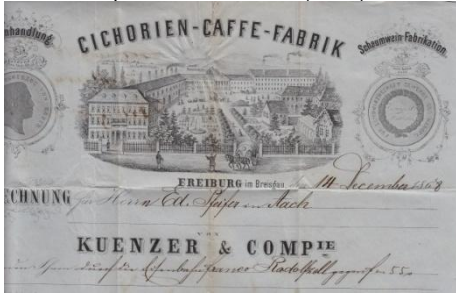 CICHORIEN-CAFFE-FABRIK
Schaumwein-Fabrikation.
FREIBURG im Breisgau 14 December 1868
ECHNUNG für Herrn Ed. Pfeifer in Aach
VON
KUENZER & COMPIE
durch die Eisenbahn Radolfzell